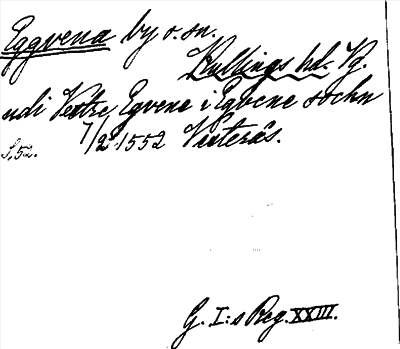 Eggvena by o. sn.
Kullings hd. Vg.
udi Vestre Egvena i Egvene sochn
7/2 1552 Vesterås.
S. 52.
G. I:s Reg. XXIII.